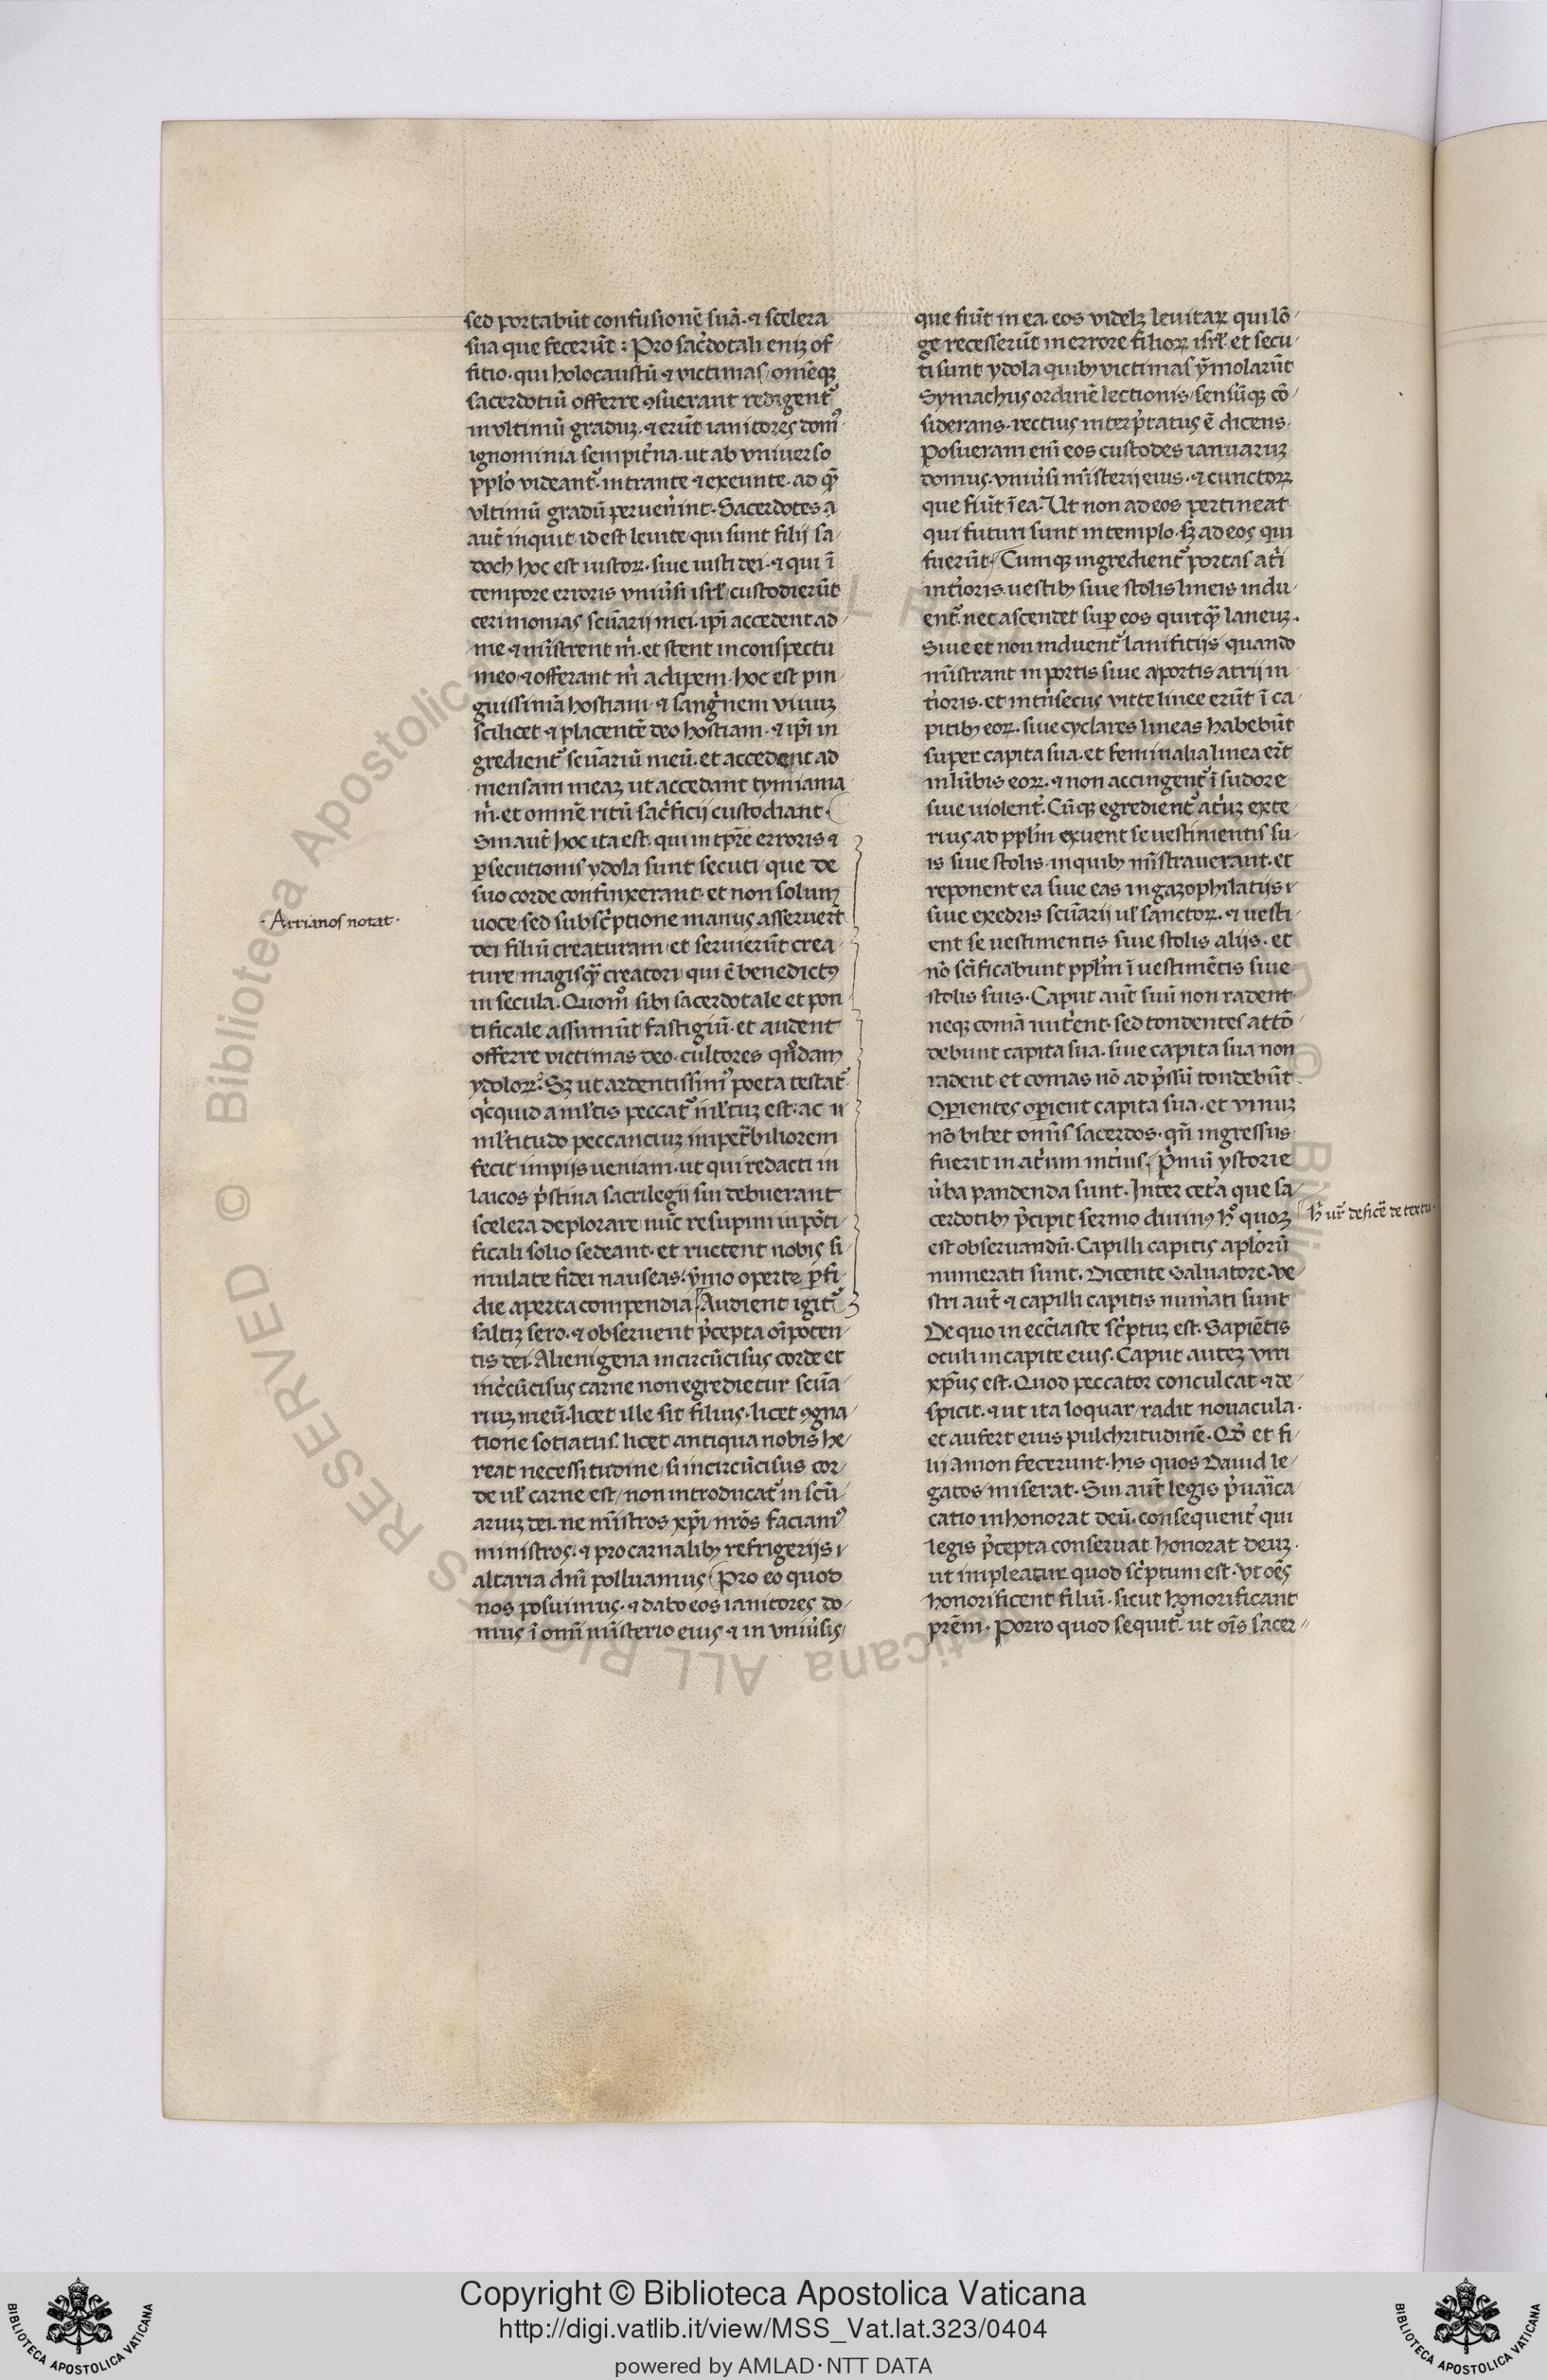 sed portabūt confusionē suā · ⁊ scelera
sua que fecerūt : Pro sac̓dotali eniꝫ of/
fitio · qui holocaustū ⁊ victimas / omēqꝫ
sacerdotiū offerre ꝯsuerant redigentᷣ
in vltimū graduꝫ · ⁊ erūt ianitores domꝰ ·
ignominia sempit̓na · ut ab vniuerso
ppl̓o videantᷣ · intrante ⁊ exeunte · ad qͣꝫ
vltimū gradū peruen̓int · Sacerdotes
aut̄ inquit id est leuite / qui sunt filij sa/
doch hoc est iustoꝝ · siue iusti dei · ⁊ qui ī
tempore erroris vniu̓si isrl̓ / custodierūt
cerimonias scūarij mei · ip̄i accedent ad/
me ⁊ mīstrent m̓ · et stent in conspectu
meo · ⁊ offerant m̓ adipem · hoc est pin/
guissimā hostiam · ⁊ sang̓nem viuuꝫ
scilicet ⁊ placentē deo hostiam · ⁊ ip̄i in
gredientᷣ scūariū meū · et accedent ad
mensam meaꝫ ut accedant tymiama
m̓ · et omnē ritū sac̓ficij custodiant ·
Sin aut̄ hoc ita est · qui in tp̄re erroris ⁊
ꝑsecutionis ydola sunt secuti que de
suo corde confinxerant · et non soluꝫ
uoce / sed subsc̓ptione manus asseruer̄t
dei filiū creaturam / et seruierūt crea/
ture magisqͣꝫ creatori qui ē benedictꝰ
in secula · Quomō sibi sacerdotale et pon
tificale assumūt fastigiū · et audent
offerre victimas deo · cultores qͦndam
ydoloꝝ · Sꝫ ut ardentissimꝰ poeta testatᷣ ·
qͥcquid a ml̓tis peccatᷣ ml̓tuꝫ est · ac
ml̓titudo peccanciuꝫ impet̓biliorem
fecit impijs ueniam · ut qui redacti in
laicos p̓stina sacrilegij sui debuerant
scelera deplorare / nūc resupini in pōti/
ficali solio sedeant · et ructent nobis si/
mulate fidei nauseas · ẏmo operte ꝑfi/
die aperta compendia / Audient igitᷣ
saltiꝫ sero · ⁊ obseruent p̓cepta oīpoten/
tis dei · Alienigena in circūcisus corde et
inc̓cūcisus carne non egredietur scūa/
riuꝫ meū · licet ille sit filius · licet ꝯgna/
tione sotiatus · licet antiqua nobis he/
reat necessitudine / si incircūcisus cor/
de ul̓ carne est / non introducatᷣ in scū/
ariuꝫ dei · ne mīstros xp̄i / nr̄os faciamꝰ
ministros · ⁊ pro carnalibꝫ refrigerijs
altaria dnī polluamus / Pro eo quod
nos posuimus · ⁊ dabo eos ianitores do/
mus ī omī mīsterio eius ⁊ in vniu̓sis /
· Arrianos notat ·
que fiūt in ea · eos videlꝫ leuitaꝝ qui lō/
ge recesserūt in errore filioꝝ isrl̓ et secu/
ti sunt ydola quibꝫ victimas ẏmolarūt
Symachus ordinē lectionis / sensūqꝫ cō/
siderans · rectius interp̓tatus ē dicens ·
Posueram enī eos custodes ianuaruꝫ
domus · vniu̓si mīsterij eius · ⁊ cunctoꝝ
que fiūt ī ea · Ut non ad eos pertineat
qui futuri sunt in templo · sꝫ ad eos qui
fuerūt · Cumqꝫ ingredientᷣ portas at̓i
int̓ioris · uestibꝫ siue stolis lineis indu/
entᷣ · nec ascendet suꝑ eos quitqͣꝫ laneuꝫ ·
Siue et non induentᷣ lanificijs · quando
mīstrant in portis siue a portis atrij in/
t̓ioris · et int̓nsecus · vitte linee erūt ī ca/
pitibꝫ eoꝝ · siue cyclares lineas habebūt
super capita sua · et feminalia linea er̄t
in lūbis eoꝝ · ⁊ non accingentᷣ ī sudore
siue uiolent̓ · Cūqꝫ egredientᷣ at̓uꝫ exte/
rius ad ppl̓m exuent se uestimentis su/
is siue stolis · in quibꝫ mīstrauerant · et
reponent ea siue eas in gazophilatijs
siue exedris scūarij ul̓ sanctoꝝ · ⁊ uesti/
ent se uestimentis siue stolis alijs · et
nō scīficabunt ppl̓m ī uestimētis siue
stolis suis · Caput aut̄ suū non radent
neqꝫ comā nut̓ent · sed tondentes attō/
debunt capita sua · siue capita sua non
radent · et comas nō ad p̓ssū tondebūt ·
Oꝑientes oꝑient capita sua · et vinuꝫ
nō bibet omīs sacerdos · qn̄ ingressus
fuerit in at̓um int̓ius · P̓mū ystorie
u̓ba pandenda sunt · Inter cet̓a que sa/
cerdotibꝫ p̓cipit sermo diuinꝰ hͦ quoqꝫ
est obseruandū · Capilli capitis apl̓orū
numerati sunt · Dicente Saluatore · Ve/
stri aut̄ ⁊ capilli capitis num̓ati sunt
De quo in ecc̄iaste sc̓ptuꝫ est · Sapiētis
oculi in capite eius · Caput auteꝫ viri
xp̄us est · Quod peccator conculcat ⁊ de/
spicit · ⁊ ut ita loquar / radit nouacula ·
et aufert eius pulchritudinē · Qd̓ et fi/
lij Amon fecerunt · his quos Dauid le/
gatos / miserat · Sin aut̄ legis p̓uaͥca
catio inhonorat deū · consequent̓ qui
legis p̓cepta conseruat honorat deuꝫ ·
ut impleatur quod sc̓ptum est · Vt oēs
honorificent filiū · sicut honorificant
prēm · Porro quod sequitᷣ · ut oīs sacer/
h̓ ur̄ deficē de textu ·
Copyright © Biblioteca Apostolica Vaticana
http://digi.vatlib.it/view/MSS_Vat.lat.323/0404
powered by AMLAD · NTT DATA
BIBLIOTECA APOSTOLICA VATICANA
BIBLIOTECA APOSTOLICA VATICANA